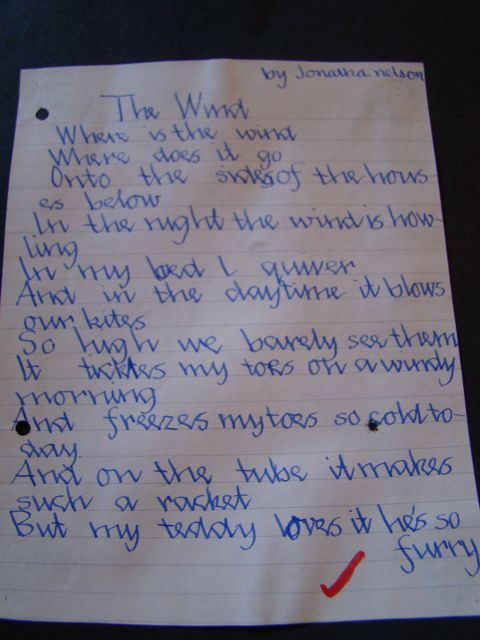 by Jonatha nelson
The Wind
Where is the wind
Where does it go
Onto the sides of the hous-
es below
In the night the wind is how-
ling
In my bed I quiver
And in the daytime it blows
our kites
So high we barely see them
It tickles my toes on a windy
morning
And freezes my toes so cold to-
day
And on the tube it makes
such a racket
But my teddy loves it he's so
furry